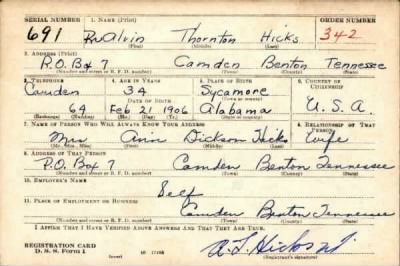 SERIAL NUMBER 1. NAME (Print) ORDER NUMBER
691 Dr Alvin Thornton Hicks 342
(First) (Middle) (Last)
2. ADDRESS (Print)
P.O. Box 7 Camden Benton Tennessee
(Number and street or R. F. D. number) (Town) (County) (State)
3. TELEPHONE 4. AGE IN YEARS 5. PLACE OF BIRTH 6. COUNTRY OF CITIZENSHIP
Camden 34 Sycamore
DATE OF BIRTH (Town or county)
64 Feb 21 1906 Alabama U.S.A.
(Exchange) (Number) (Mo.) (Day) (Yr.) (State or country)
7. NAME OF PERSON WHO WILL ALWAYS KNOW YOUR ADDRESS 8. RELATIONSHIP OF THAT PERSON
Mrs Ann Dickson Hicks Wife
(Mr., Mrs., Miss) (First) (Middle) (Last)
9. ADDRESS OF THAT PERSON
P.O. Box 7 Camden Benton Tennessee
(Number and street or R. F. D. number) (Town) (County) (State)
10. EMPLOYER'S NAME
Self
11. PLACE OF EMPLOYMENT OR BUSINESS
Camden Benton Tennessee
(Number and street or R. F. D. number) (Town) (County) (State)
I AFFIRM THAT I HAVE VERIFIED ABOVE ANSWERS AND THAT THEY ARE TRUE.
REGISTRATION CARD
D. S. S. Form 1 16—17105 (Registrant's signature)
A T Hicks